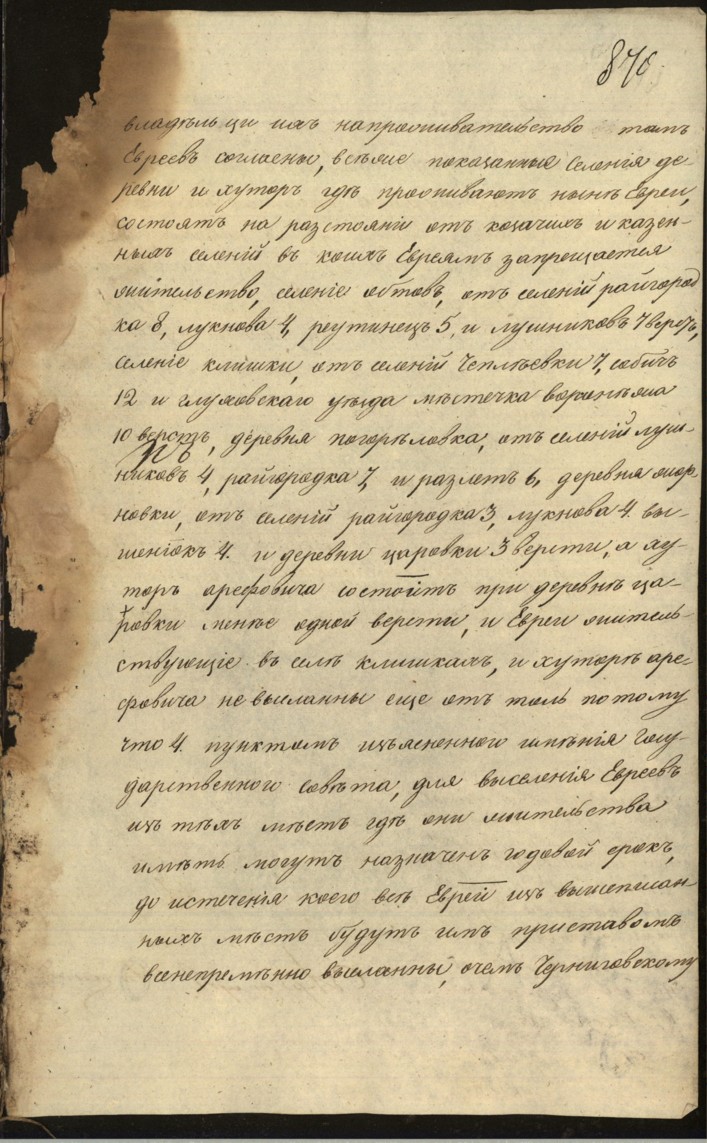 870
владѣльци ихъ на проживательство тамъ
Евреевъ согласны, всѣже показанные селенія де-
ревни и хуторъ гдѣ проживаютъ нынѣ Евреи,
состоятъ на разстояніи отъ козачихъ и казен-
ныхъ селеній въ коихъ Евреямъ запрещается
жительство, селеніе обтовъ, отъ селеній райгород
ка 8, лукнова 4, реутинецъ 5, и лушниковъ 7 верстъ,
селеніе клишки, отъ селеній Чеплѣевки 7, собичь
12 и глуховскаго уѣзда мѣстечка воронѣжа
10 верстъ, деревня погорѣловка, отъ селеній луш-
никовъ 4, райгородка 7, и разлетъ 6, деревня
отъ селеній райгородка 3, лукнова 4. вы-
шенокъ 4. и деревни царовки 3 версти, а ху-
торъ арефовича состоитъ при деревнѣ ца-
ровки менѣе одной версти, и Евреи житель-
ствующіе въ селѣ клишкахъ, и хуторѣ аре-
фовича не высланны еще отъ толь потому
что 4. пунктомъ изъясненного мнѣнія госу-
дарственного совѣта, для выселенія Евреевъ
изъ тѣхъ мѣстъ гдѣ они жительства
имѣть могутъ назначенъ годовой срокъ,
до истеченія коего всѣ Еврей изъ вышеписан-
ныхъ мѣстъ будутъ имъ приставомъ
всенепремѣнно высланны, очемъ Черниговскому